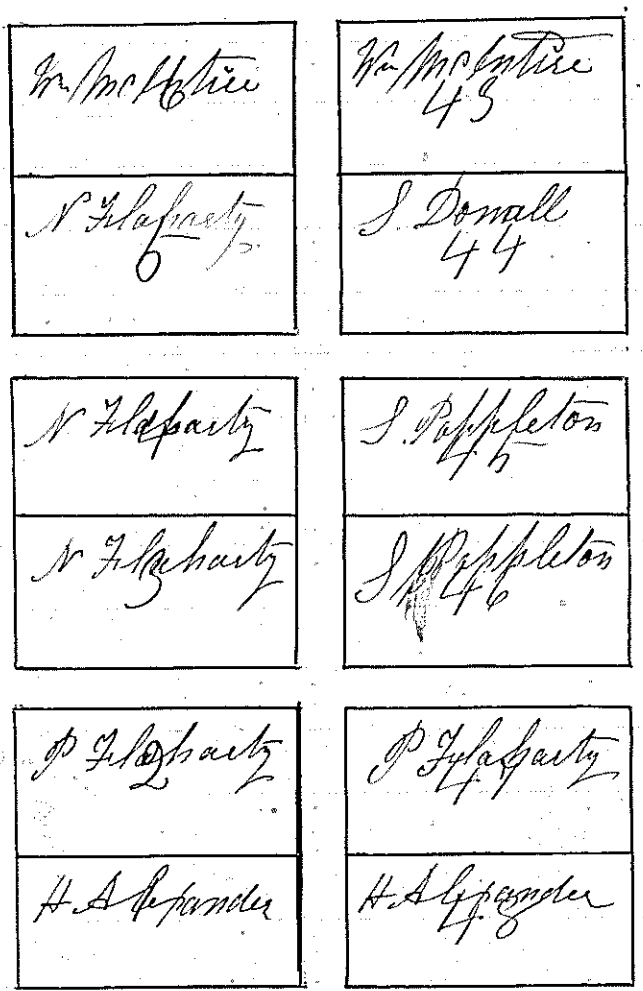 Wm McIntire
6
N Flaharty
5
N Flaharty
4
N Flaharty
3
P Flaharty
2
H Alexander
Wm McIntire
43
S Dowall
44
S. Poppleton
45
S Poppleton
46
P Flaharty
47
H Alexander
48